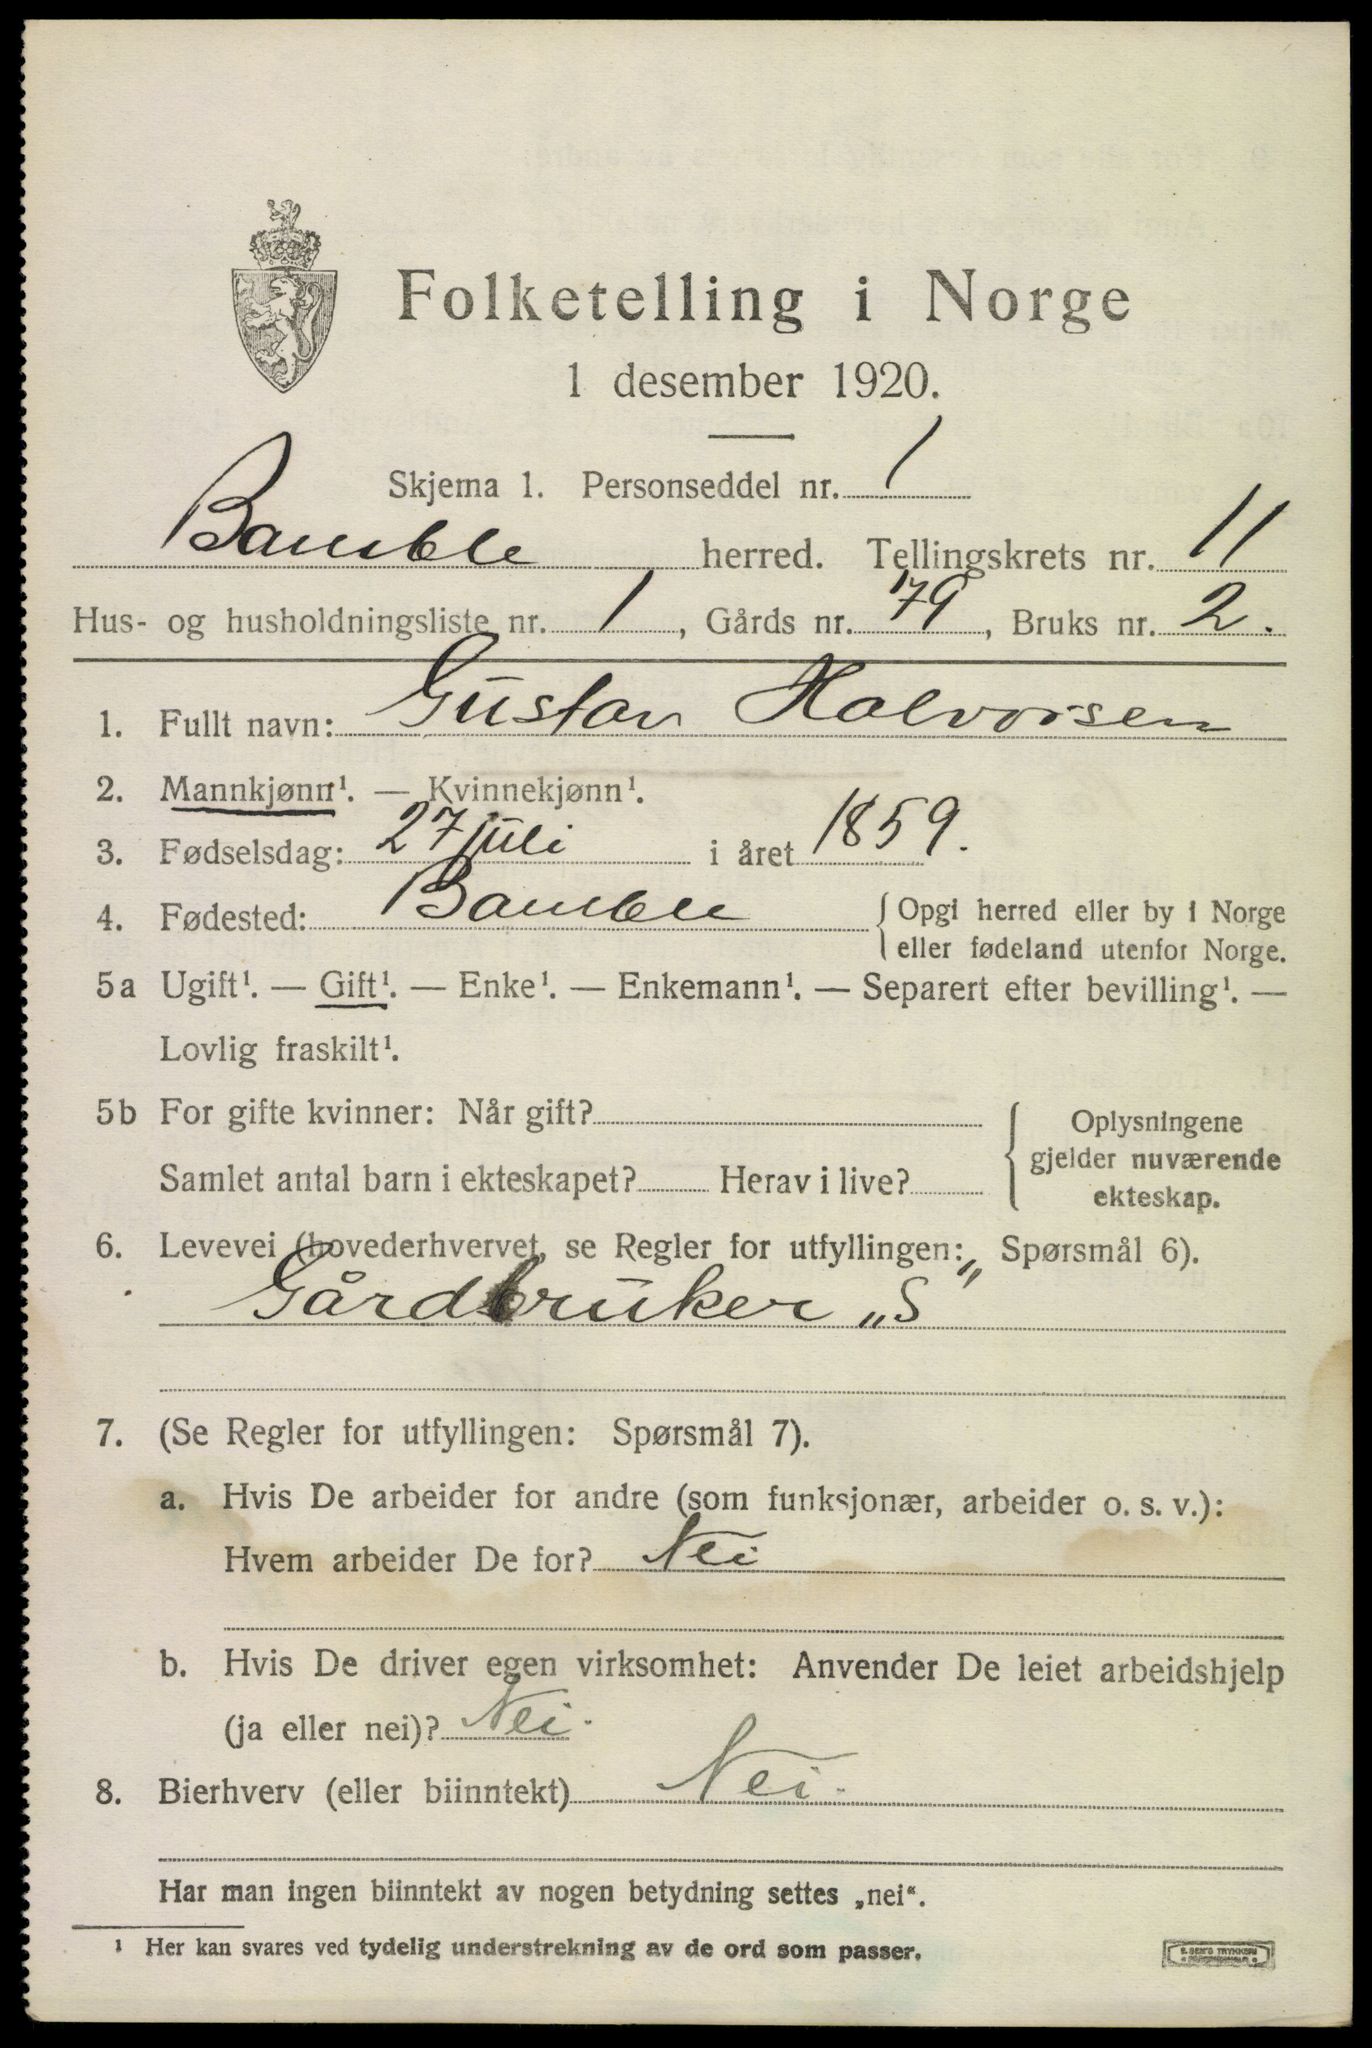 Folketelling i Norge
1 desember 1920.
Skjema 1. Personseddel nr. 1
Bamble herred. Tellingskrets nr. 11
Hus- og husholdningsliste nr. 1, Gårds nr. 79, Bruks nr. 2.
1. Fullt navn: Gustav Halvorsen
2. Mannkjønn¹. — Kvinnekjønn¹.
3. Fødselsdag: 27 juli i året 1859.
4. Fødested: Bamble { Opgi herred eller by i Norge
eller fødeland utenfor Norge.
5a Ugift¹. — Gift¹. — Enke¹. — Enkemann¹. — Separert efter bevilling¹. —
Lovlig fraskilt¹.
5b For gifte kvinner: Når gift? { Oplysningene
gjelder nuværende
Samlet antal barn i ekteskapet? Herav i live?
ekteskap.
6. Levevei (hovederhvervet, se Regler for utfyllingen: Spørsmål 6).
Gårdbruker „S"
7. (Se Regler for utfyllingen: Spørsmål 7).
a. Hvis De arbeider for andre (som funksjonær, arbeider o. s. v.):
Hvem arbeider De for? Nei
b. Hvis De driver egen virksomhet: Anvender De leiet arbeidshjelp
(ja eller nei)? Nei.
8. Bierhverv (eller biinntekt) Nei.
Har man ingen biinntekt av nogen betydning settes „nei“.
¹ Her kan svares ved tydelig understrekning av de ord som passer.